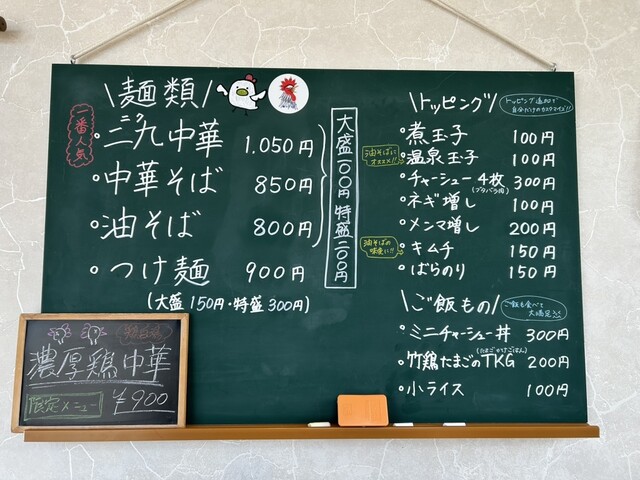 麺類
一番人気
三九中華 1.050円
中華そば 850円
油そば 800円
大盛一〇〇円 特盛二〇〇円
つけ麺 900円
(大盛150円・特盛300円)
トッピング
トッピング追加で
自分だけのカスタマイズ!!
煮玉子 100円
油そばに
オススメ!!
温泉玉子 100円
チャーシュー4枚 300円
(ブタバラ肉)
ネギ増し 100円
メンマ増し 200円
油そばの
味変に!!
キムチ 150円
ばらのり 150円
ご飯もの
ご飯も食べて
大満足
ミニチャーシュー丼 300円
(たまごかけごはん)
竹鶏たまごのTKG 200円
小ライス 100円
濃厚鶏中華
限定メニュー ¥900